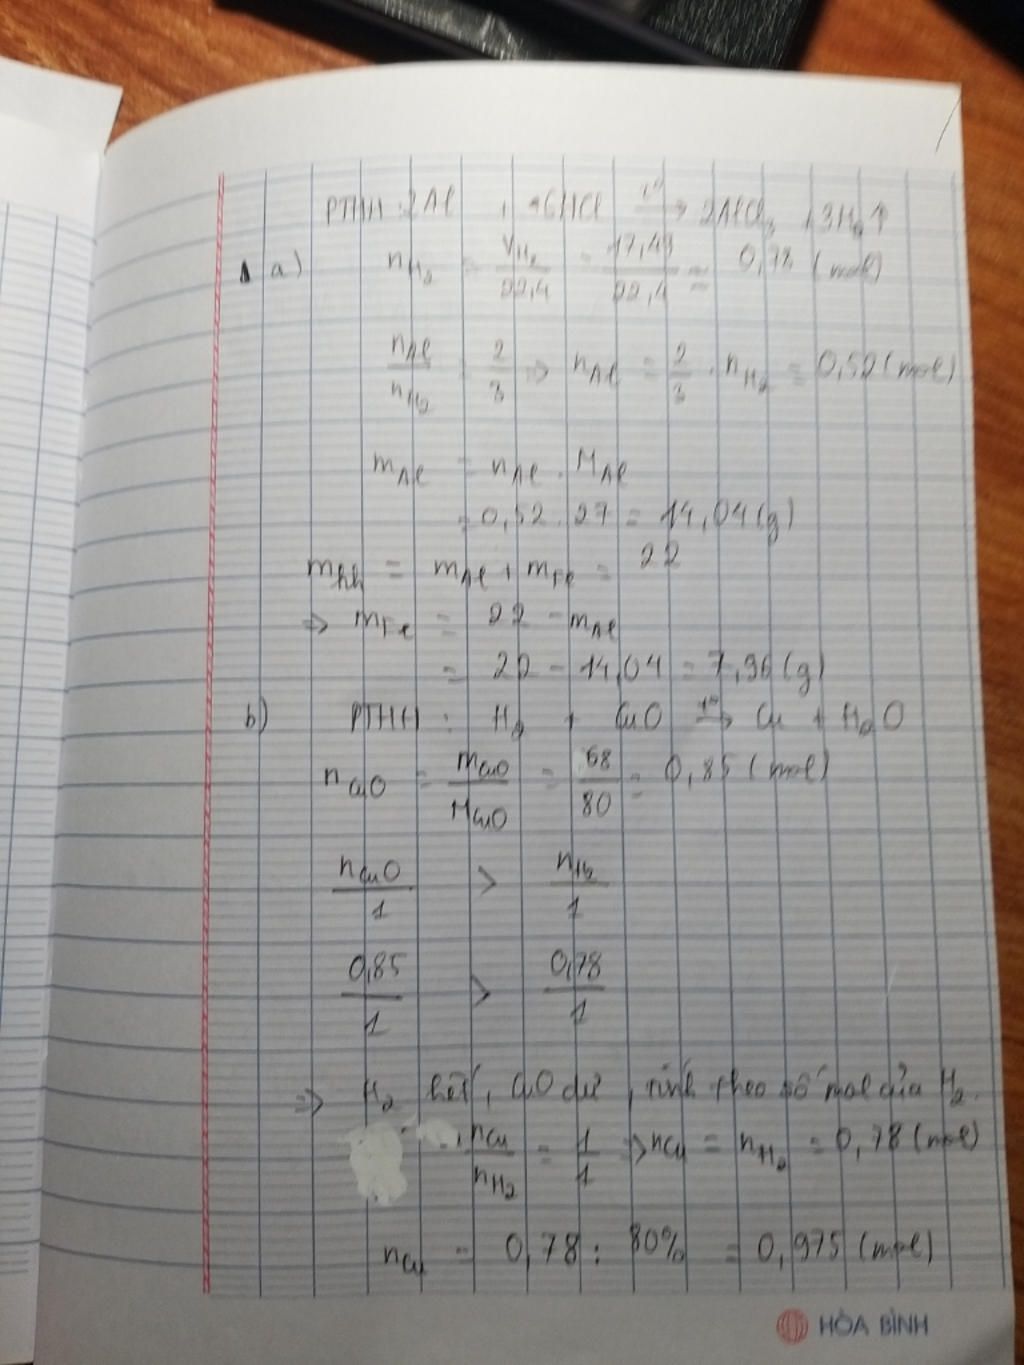 PTHH : 2Al + 6HCl t°→ 2AlCl₃ + 3H₂↑
1 a) nH₂ = VH₂/22,4 = 17,47/22,4 = 0,78 (mol)
nAl/nH₂ = 2/3 => nAl = 2/3 . nH₂ = 0,52 (mol)
mAl = nAl . MAl
= 0,52 . 27 = 14,04 (g)
mhh = mAl + mFe = 22
=> mFe = 22 - mAl
= 22 - 14,04 = 7,96 (g)
b) PTHH : H₂ + CuO t°→ Cu + H₂O
nCuO = mCuO/MCuO = 68/80 = 0,85 (mol)
nCuO/1 > nH₂/1
0,85/1 > 0,78/1
=> H₂ hết, CuO dư, tính theo số mol của H₂.
nCu/nH₂ = 1/1 => nCu = nH₂ = 0,78 (mol)
nCu = 0,78 : 80% = 0,975 (mol)
HÒA BÌNH